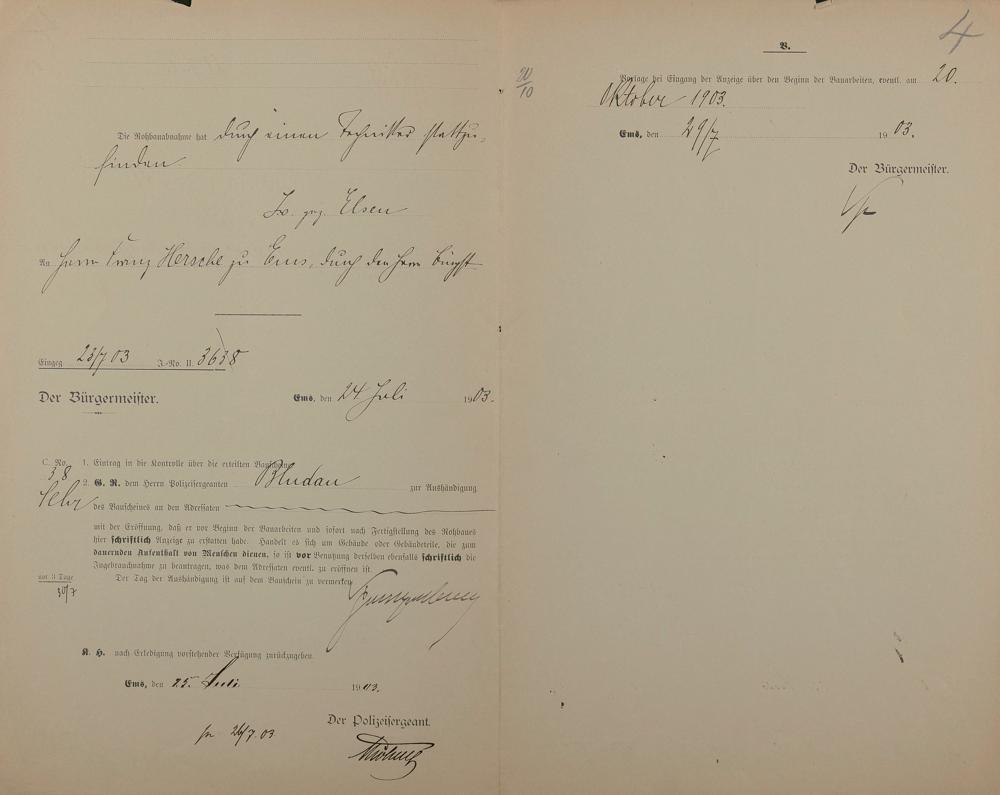 Die Rohbauabnahme hat durch einen Techniker stattzu-
finden.
gez. Elsen
An Herrn Franz Hersche zu Ems, durch den Herrn
Eingeg. 23/7 03 J.-No. II. 3638
Der Bürgermeister.
Ems, den 24 Juli 1903.
C. No. 38
1. Eintrag in die Kontrolle über die erteilten Bauscheine
2. G. R. dem Herrn Polizeisergeanten Bludau zur Aushändigung
des Bauscheines an den Adressaten
mit der Eröffnung, daß er vor Beginn der Bauarbeiten und sofort nach Fertigstellung des Rohbaues
hier schriftlich Anzeige zu erstatten habe. Handelt es sich um Gebäude oder Gebäudeteile, die zum
dauernden Aufenthalt von Menschen dienen, so ist vor Benutzung derselben ebenfalls schriftlich die
Ingebrauchnahme zu beantragen, was dem Adressaten eventl. zu eröffnen ist.
Der Tag der Aushändigung ist auf dem Bauschein zu vermerken
not. 3 Tage
30/7
K. H. nach Erledigung vorstehender Verfügung zurückzugeben.
Ems, den 25. Juli 1903.
Der Polizeisergeant.
26/7.03
4
V.
20/10
Vorlage bei Eingang der Anzeige über den Beginn der Bauarbeiten, eventl. am 20.
Oktober 1903.
Ems, den 29/7 1903.
Der Bürgermeister.